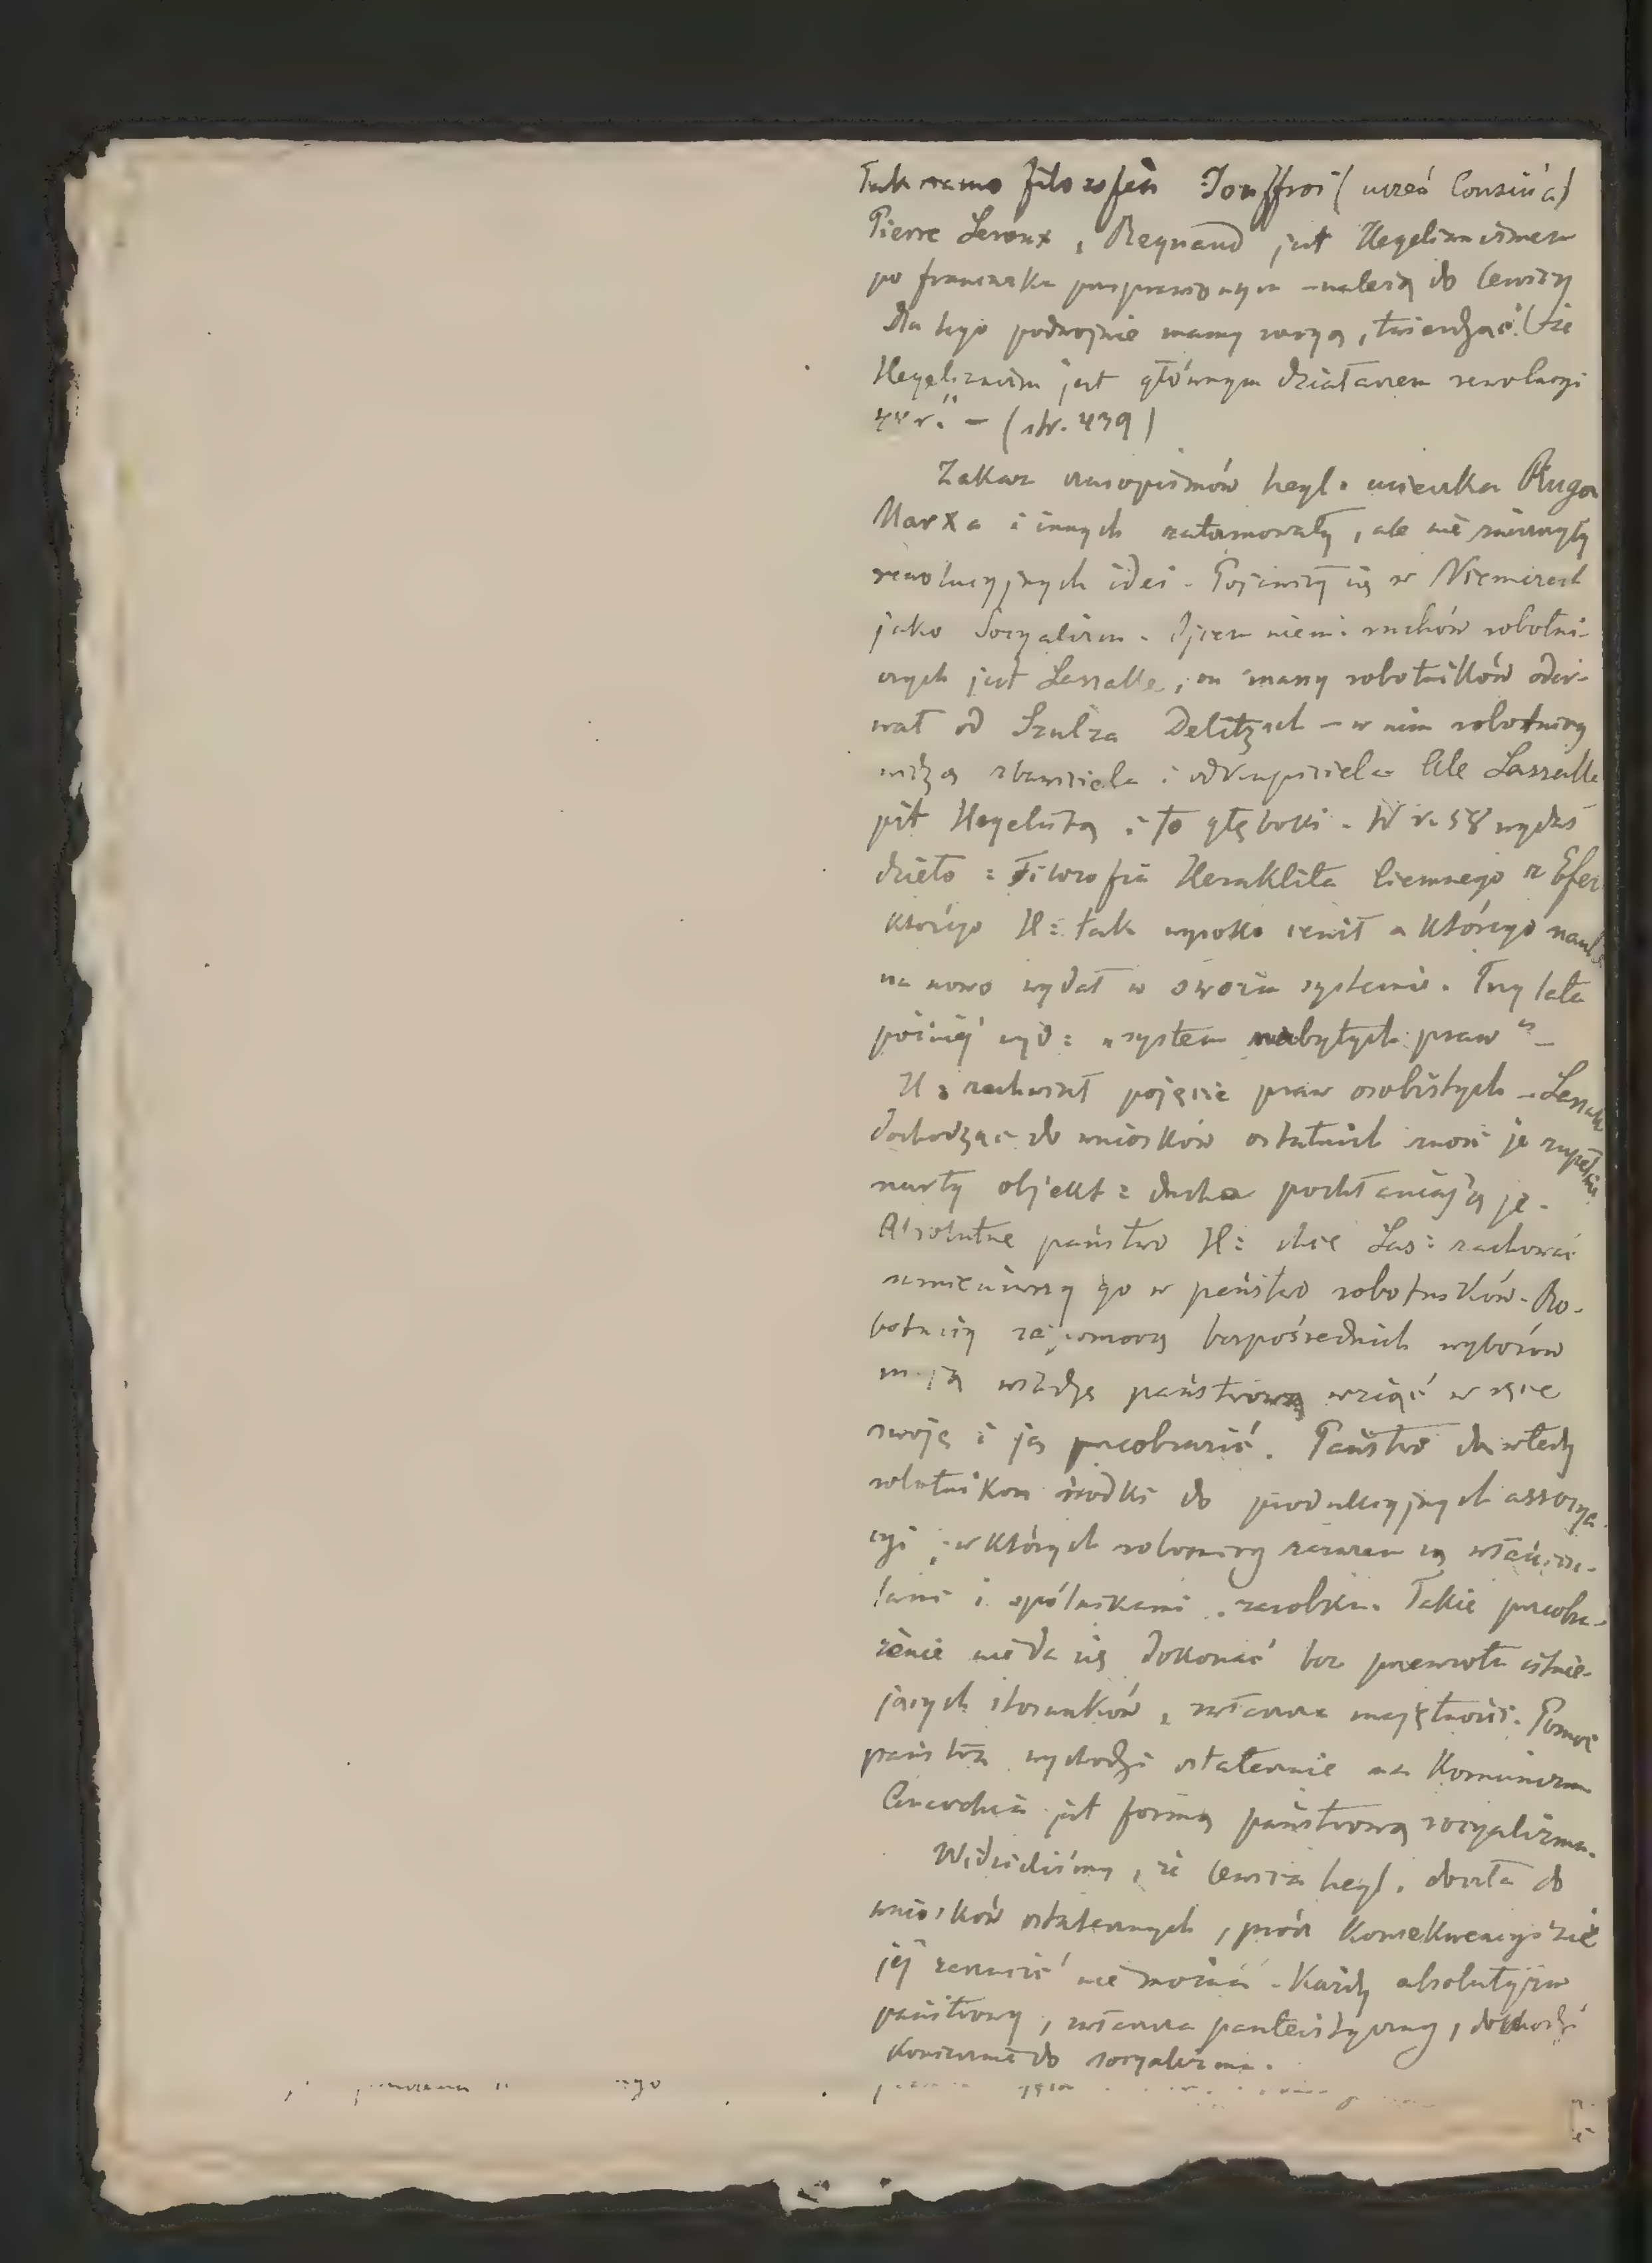 Tak samo filozofia Jouffroi (uczeń Consin'a)
Pierre Leroux, Regnaud jest Hegelianizmem
po francusku poprawionym - należą do lewicy
Dla tego podwójnie mamy racyą, twierdząc: (że
Hegelianizm jest głównym działaczem rewolucyi
48 r." - (str. 439)
Zakaz czasopismów hegl. ucieczka Rugo
Marxa i innych zatamowały, ale nie zniszczyły
rewolucyjnych idei. Pojawiły się w Niemczech
jako Socyalizm. Ojcem niem: ruchów robotni-
czych jest Lassalle, on masy robotników oder-
wał od Szulza Delitzsch - w nim robotnicy
widzą zbawiciela i odkupiciela. Ale Lassalle
jest Hegelistą i to głęboki. W r. 58 wydał
dzieło: Filozofia Heraklita Ciemnego z Efez
którego H: tak wysoko cenił a którego nauk
na nowo wydał w swoim systemie. Trzy lata
później wyd: „system nabytych praw" -
H: zachwiał pojęcie praw osobistych - Lassalle
dochodząc do wniosków ostatnich znosi je zupełnie
objekt: ducha pochłaniają je.
Absolutne państwo H: chce Las: zachować
zamieniwszy go w państwo robotników. Ro-
botnicy za pomocą bezpośrednich wyborów
mają władzę państwową wziąć w ręce
swoje i ją przeobrazić. Państwo da wtedy
robotnikom środki do produkcyjnych assocya-
cyi, w których robotnicy zarazem są właścicie-
lami i spólnikami zarobku. Takie przeobra-
żenie nie da się dokonać bez przewrotu istnie-
jących stosunków, zwłaszcza majętności. Pomoc
państwa wychodzi ostatecznie na Komunizm
jest formą państwową socyalizmu.
Widzieliśmy, że lewica hegl. doszła do
wniosków ostatecznych, prócz konsekwencyi nic
jej zarzucić nie można. Każdy absolutyzm
państwowy, zwłaszcza panteistyczny, dochodzi
koniecznie do socyalizmu.